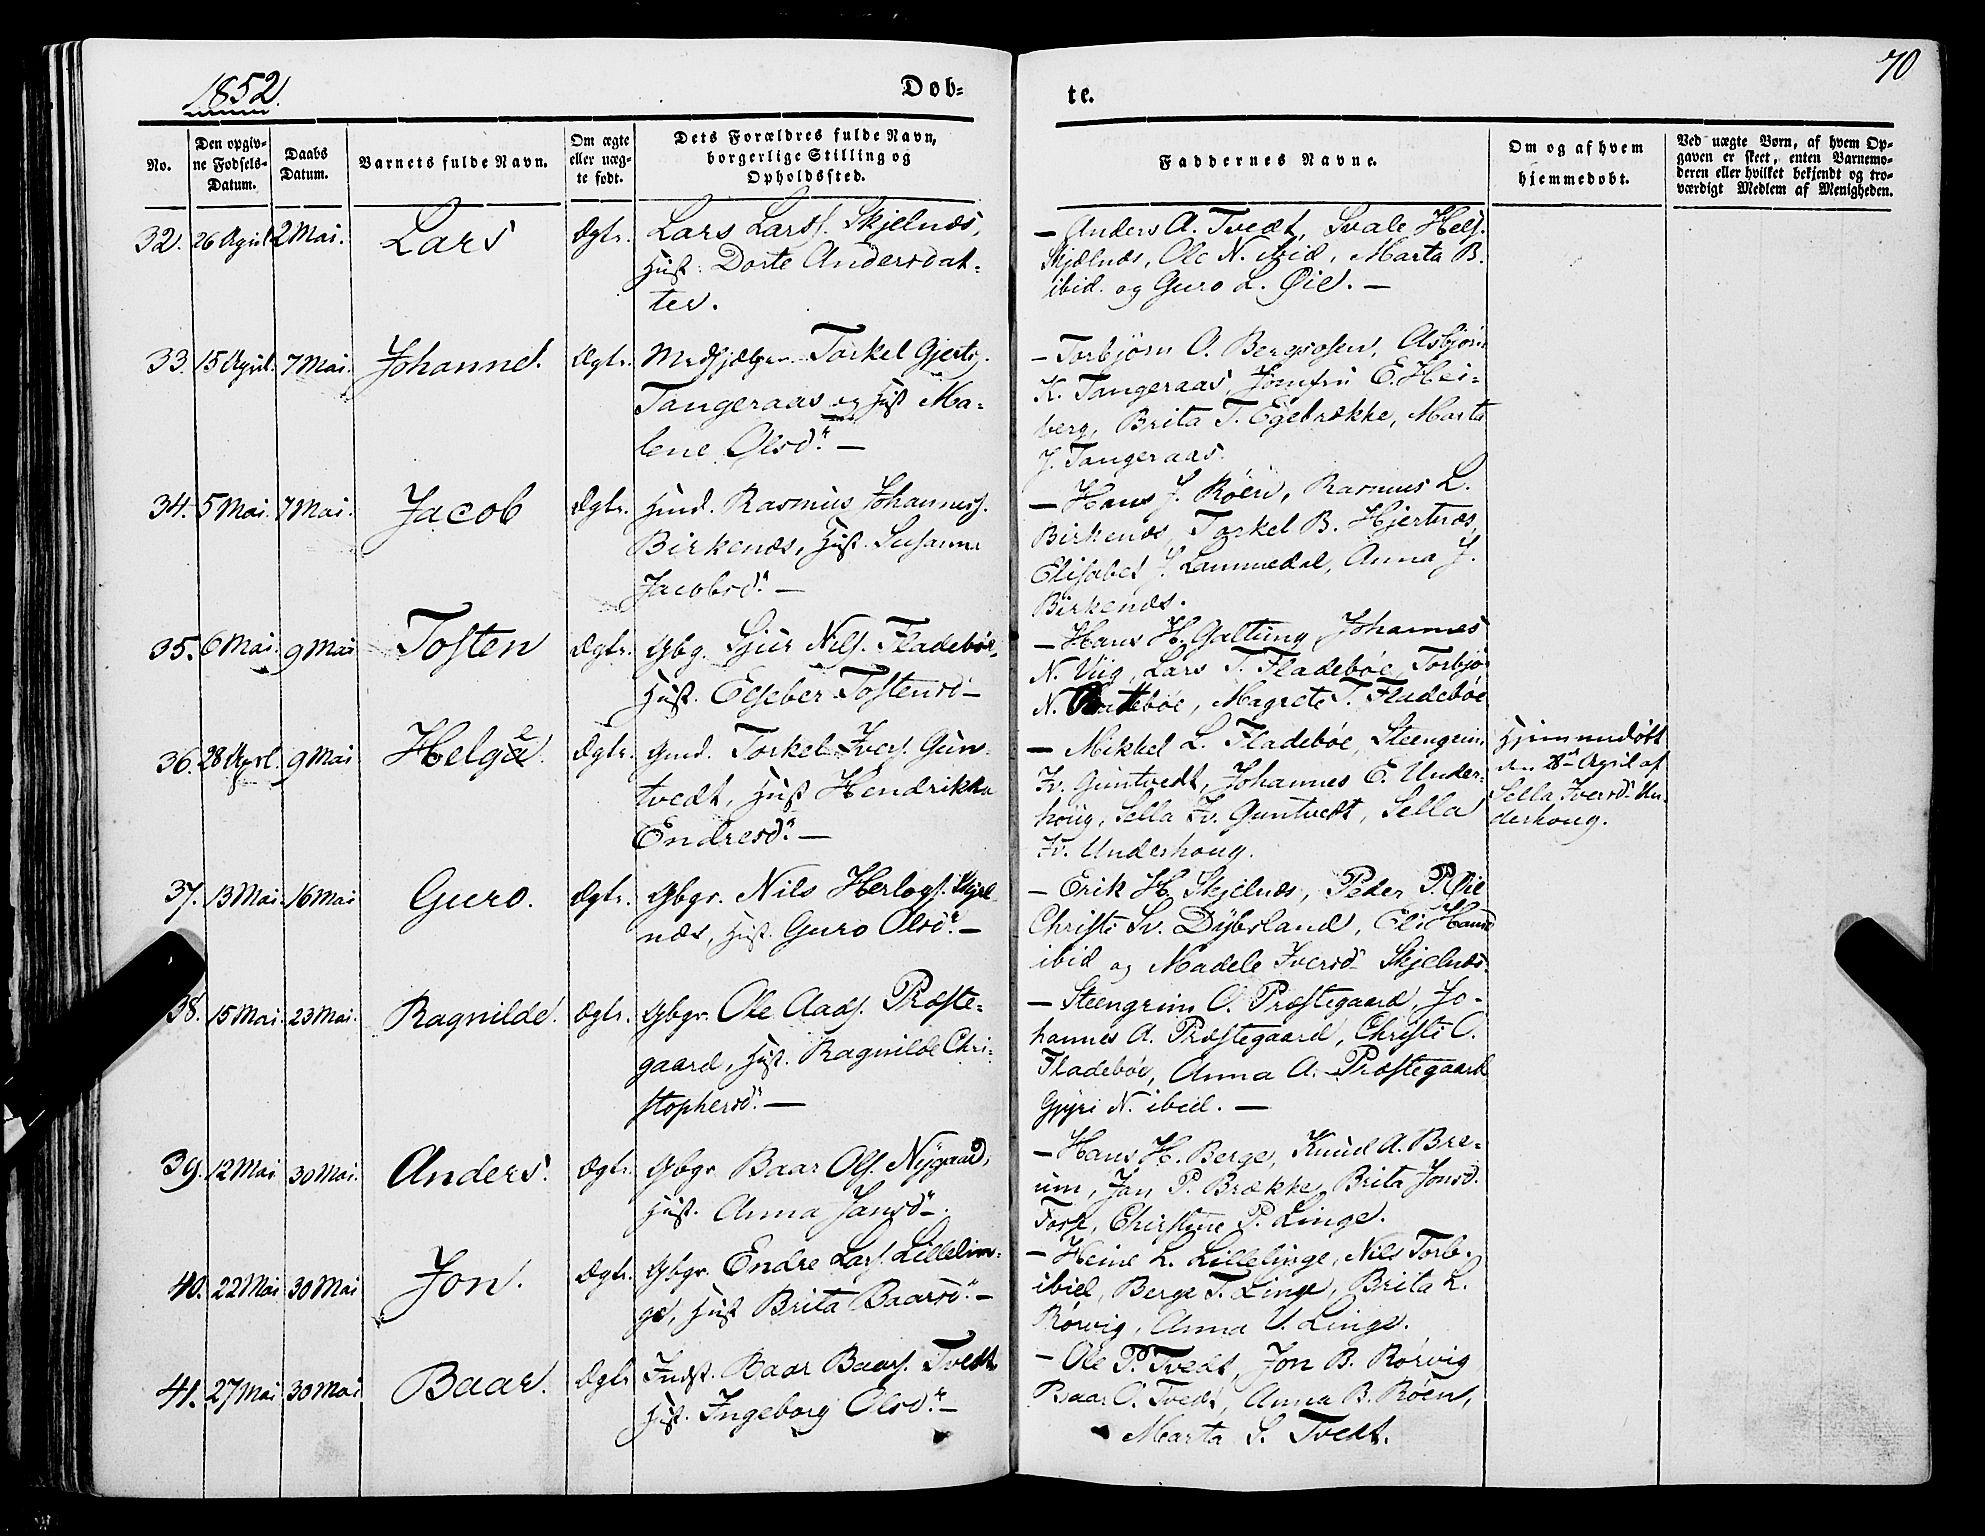 1852.
Dob-
te.
70
No.
Den opgiv-
ne Fødsels-
Datum.
Daabs
Datum.
Barnets fulde Navn.
Om ægte
eller uæg-
te født.
Dets Forældres fulde Navn,
borgerlige Stilling og
Opholdssted.
Faddernes Navne.
Om og af hvem
hjemmedøbt.
Ved uægte Børn, af hvem Op-
gaven er skeet, enten Barnemo-
deren eller hvilket bekjendt og tro-
værdigt Medlem af Menigheden.
32. 26 April 2 Mai. Lars Ægte. Lars Larss. Skjelnæs,
Hust. Dorte Andersdat-
ter.
— Anders A. Tvedt, Svale Hels.
Skjælnæs, Ole N. ibid, Marta B.
ibid. og Guro L. Øie. —
33. 15 April. 7 Mai. Johannes. Ægte. Medhjælper Torkel Gjerts.
Tangeraas og Hust Ma-
lene Olsdr. —
— Torbjörn O. Bergsosen, Asbjörn
K. Tangeraas, Jomfru E. Hei-
berg, Brita T. Egebrække, Marta
J. Tangeraas.
34. 5 Mai. 7 Mai. Jacob Ægte. Hmd. Rasmus Johanness.
Birkenæs, Hust. Susanna
Jacobsdr. —
— Hans J. Röen, Rasmus L.
Birkenæs, Torkel B. Hjertnæs,
Elisabet J. Lammedal, Anna J.
Birkenæs.
35. 6 Mai. 9 Mai Tosten Ægte. Gbg. Sjur Nils. Fladebøe,
Hust. Elseber Tostensd —
— Hans H. Galtung, Johannes
N. Viig, Lars T. Fladebøe, Torbjø
N. bøe, Magrete T. Fladebøe
36. 28 April. 9 Mai Helge. Ægte. Gmd. Torkel Ivers. Gun-
tvedt, Hust Hendrikka
Endresdr. —
— Mikkel L. Fladebøe, Steengrim
Iv. Guntvedt, Johannes E. Under-
houg, Sella Iv. Guntvedt, Sella
Iv. Underhoug.
Hjemmedöbt
den 28 April af
Sella Iversdr Un-
derhoug.
37. 13 Mai. 16 Mai Guro. Ægte. Gbgr. Nils Herlogs. Skjel-
næs, Hust. Guro Olsdr. —
— Erik H. Skjelnæs, Peder P. Øie
Christi Sv. Dybsland, Eli Hansd
ibid og Madele Iversdr Skjelnæs.
38. 15 Mai. 23 Mai. Ragnilde. Ægte. Gbgr. Ole Aads. Præste-
gaard, Hust. Ragnilde Chri-
stophersdr. —
— Steengrim O. Præstegaard, Jo-
hannes A. Præstegaard, Christi O.
Fladebøe, Anna A. Præstegaard
Gjyri N. ibid. —
39. 12 Mai 30 Mai. Anders. Ægte. Gbgr. Baar Ols. Nygaard,
Hust. Anna Jansdr.
— Hans H. Berge, Knud A. Bre-
um, Jan P. Brække, Brita Jonsd.
Torp, Christine P. Linge.
40. 22 Mai 30 Mai Jon. Ægte. Gbgr. Endre Lars. Lillelin-
ge, Hust Brita Baarsdr. —
— Heine L. Lillelinge, Nils Torb.
ibid, Berge T. Linge, Brita L.
Rørvig, Anna V. Linge.
41. 27 Mai 30 Mai Baar. Ægte Indst. Baar Baars. Tvedt
Hust. Ingeborg Olsdr. —
— Ole P. Tvedt, Jon B. Rørvig
Baar O. Tvedt, Anna B. Röen,
Marta S. Tvedt.